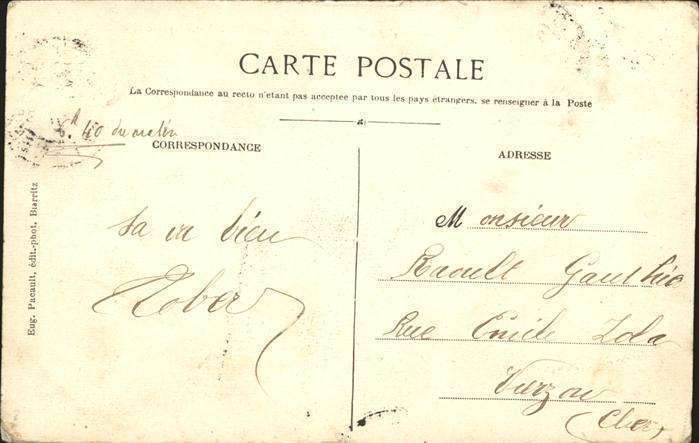 CARTE POSTALE
La Correspondance au recto n'étant pas acceptée par tous les pays étrangers, se renseigner à la Poste
6h 40 du matin
CORRESPONDANCE
Sa va bien
Rober
ADRESSE
Monsieur
Raoult Gaulthier
Rue Emile Zola
Vierzon
Cher
Eug. Pacault, édit.-phot. Biarritz